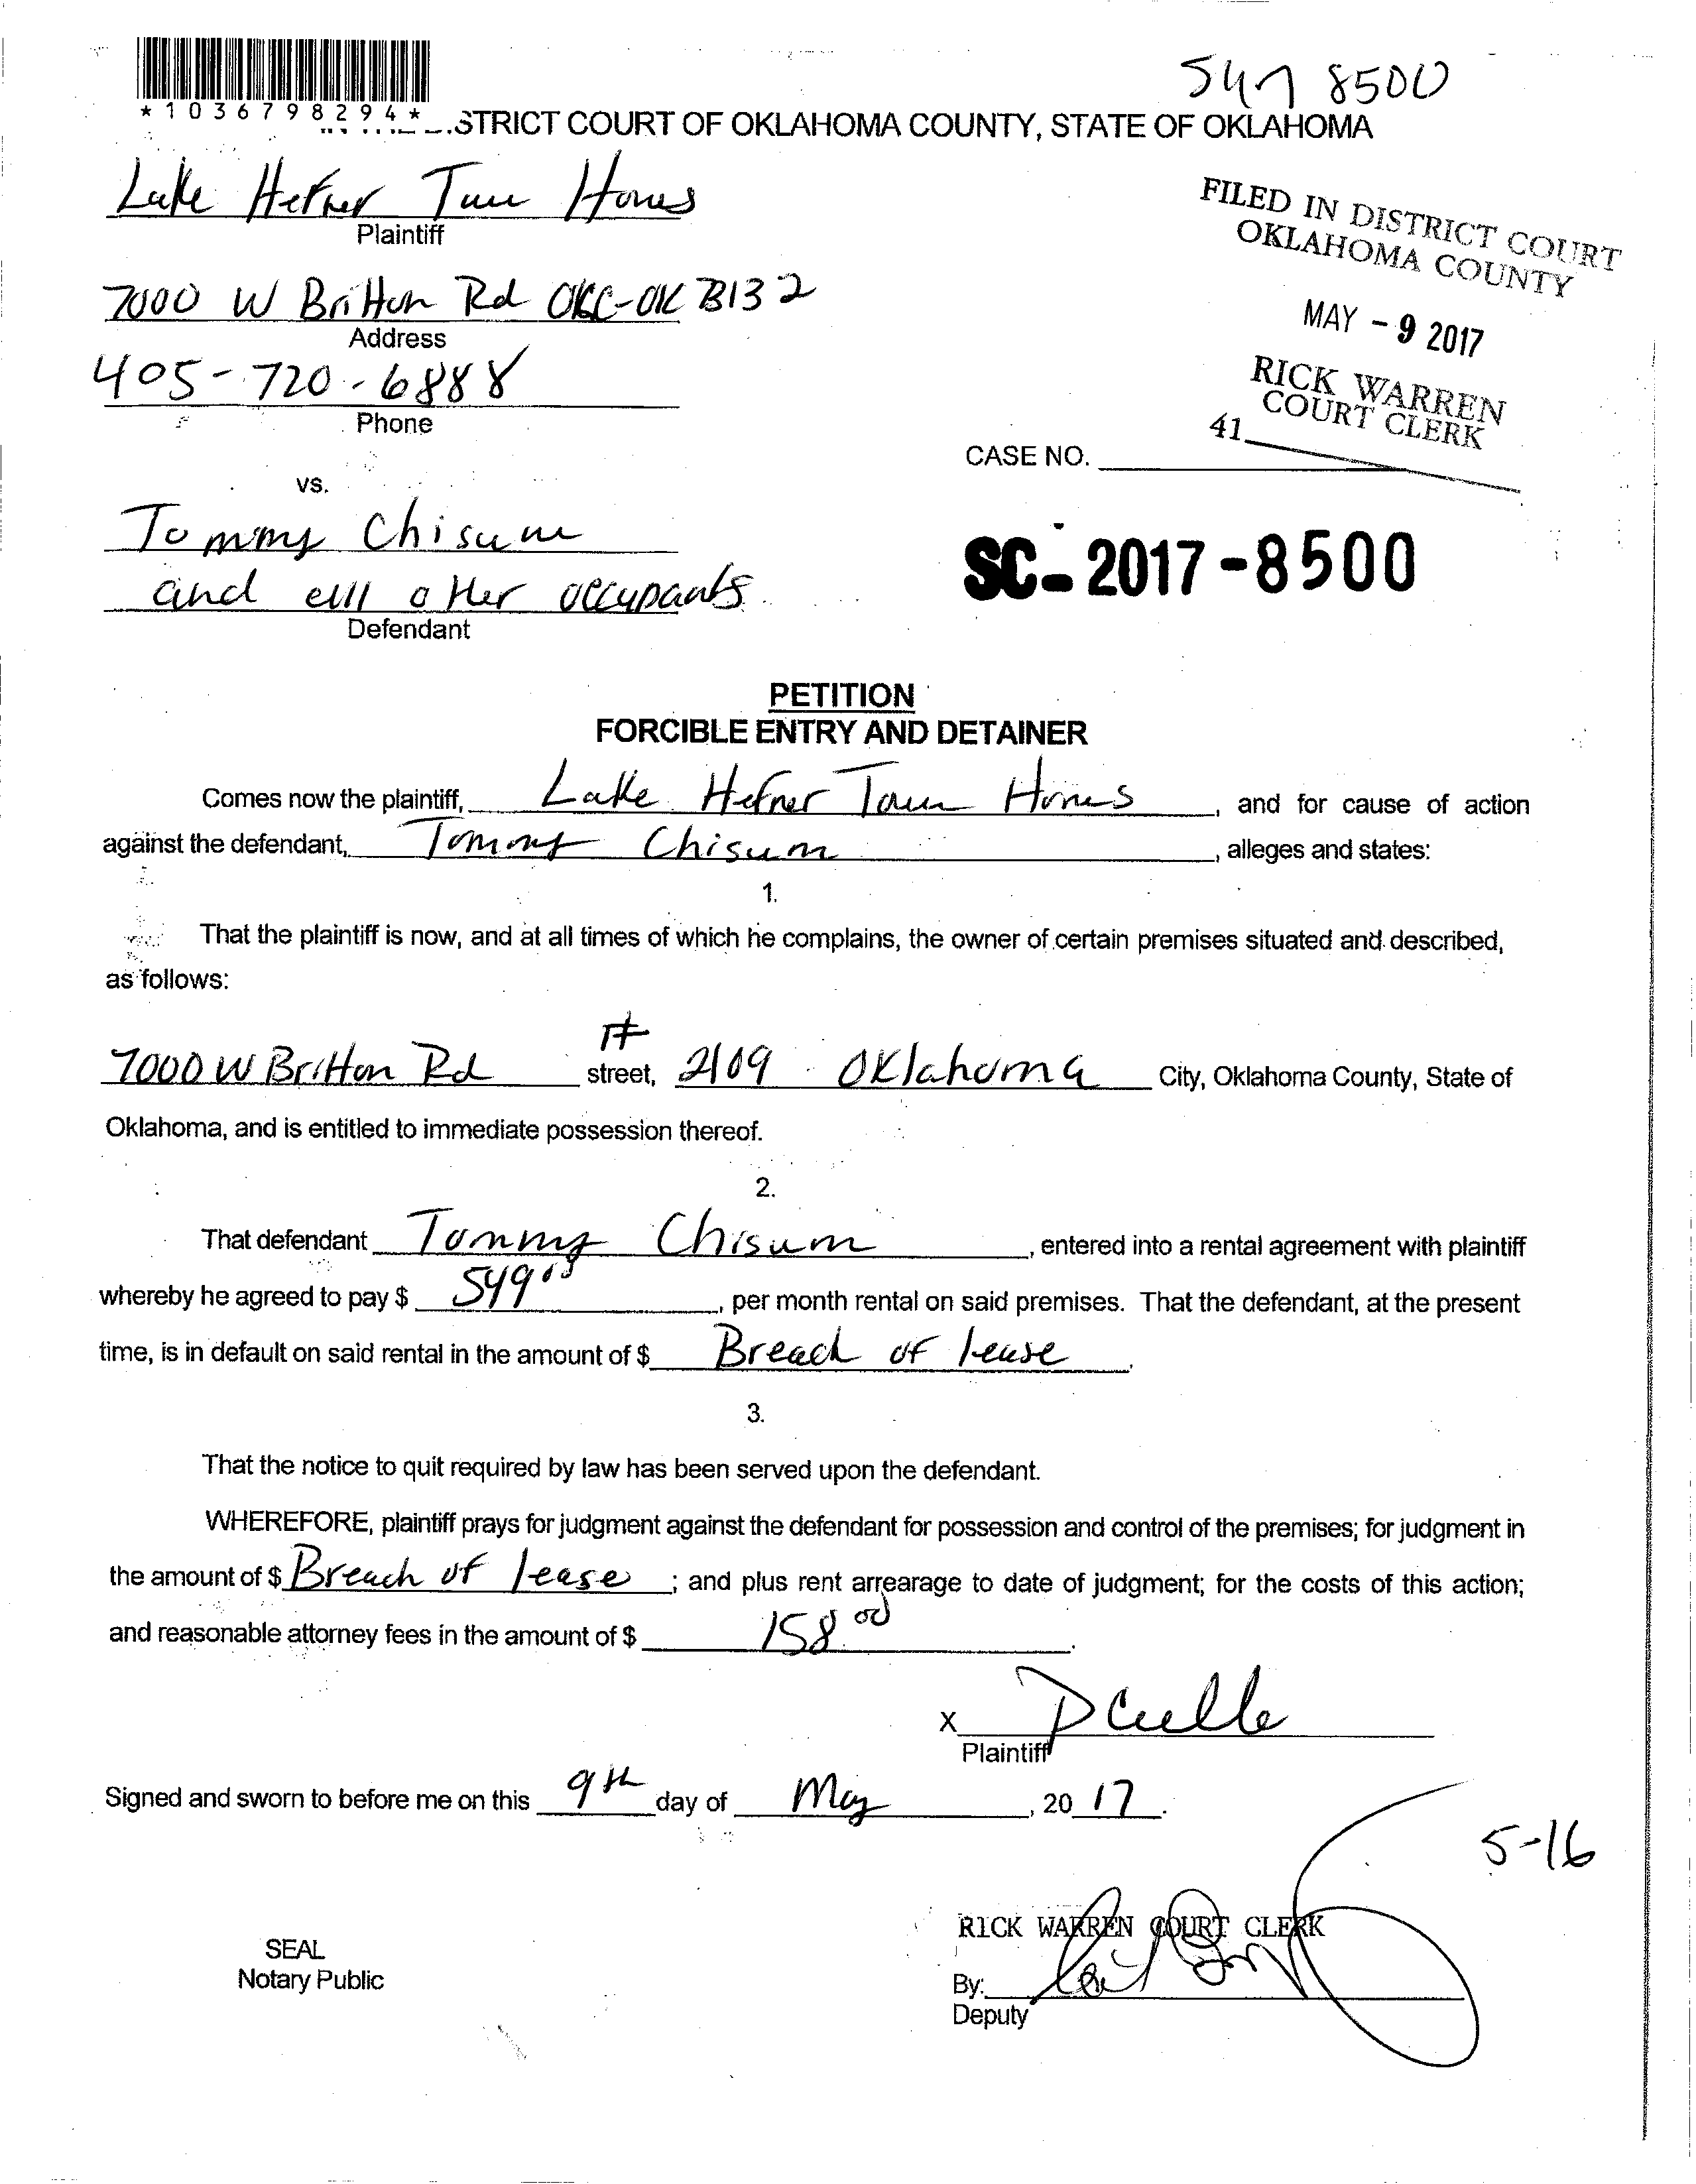 5427 8500
*1036798294*
STRICT COURT OF OKLAHOMA COUNTY, STATE OF OKLAHOMA
Lake Hefner Town Homes
Plaintiff
FILED IN DISTRICT COURT
OKLAHOMA COUNTY
7000 W Britton Rd OKC-OK 73132
Address
MAY - 9 2017
405-720-6888
Phone
RICK WARREN
COURT CLERK
41
CASE NO.
vs.
Tommy Chisum
and all other occupants
Defendant
SC-2017-8500
PETITION
FORCIBLE ENTRY AND DETAINER
Comes now the plaintiff, Lake Hefner Town Homes, and for cause of action
against the defendant, Tommy Chisum, alleges and states:
1.
That the plaintiff is now, and at all times of which he complains, the owner of certain premises situated and described,
as follows:
7000 W Britton Rd street, # 2109 Oklahoma City, Oklahoma County, State of
Oklahoma, and is entitled to immediate possession thereof.
2.
That defendant Tommy Chisum, entered into a rental agreement with plaintiff
whereby he agreed to pay $ 549.00, per month rental on said premises. That the defendant, at the present
time, is in default on said rental in the amount of $ Breach of lease.
3.
That the notice to quit required by law has been served upon the defendant.
WHEREFORE, plaintiff prays for judgment against the defendant for possession and control of the premises; for judgment in
the amount of $ Breach of lease; and plus rent arrearage to date of judgment; for the costs of this action;
and reasonable attorney fees in the amount of $ 158.00.
X
Plaintiff
Signed and sworn to before me on this 9th day of May, 20 17.
5-16
RICK WARREN COURT CLERK
SEAL
Notary Public
By:
Deputy